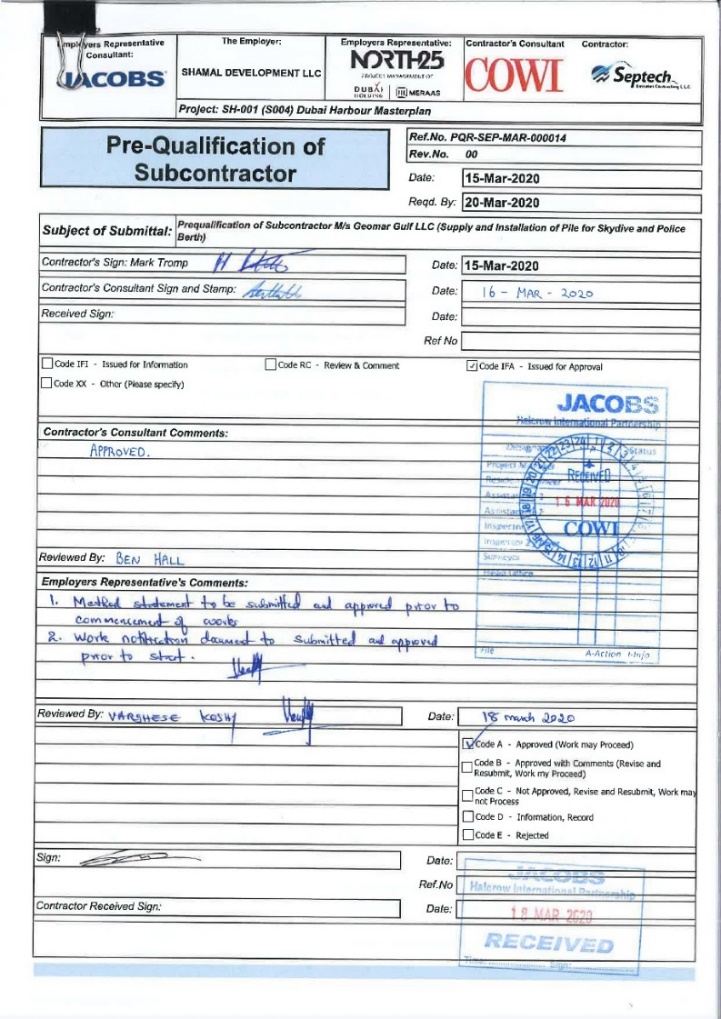 Employers Representative Consultant:
JACOBS
The Employer:
SHAMAL DEVELOPMENT LLC
Employers Representative:
NORTH25
PROJECT MANAGEMENT OF
DUBAI HOLDING
MERAAS
Contractor's Consultant
COWI
Contractor:
Septech
Project: SH-001 (S004) Dubai Harbour Masterplan
Pre-Qualification of
Subcontractor
Ref.No. PQR-SEP-MAR-000014
Rev.No. 00
Date: 15-Mar-2020
Reqd. By: 20-Mar-2020
Subject of Submittal: Prequalification of Subcontractor M/s Geomar Gulf LLC (Supply and Installation of Pile for Skydive and Police
Berth)
Contractor's Sign: Mark Tromp
Date: 15-Mar-2020
Contractor's Consultant Sign and Stamp:
Date: 16 - MAR - 2020
Received Sign:
Date:
Ref No
Code IFI - Issued for Information
Code RC - Review & Comment
Code IFA - Issued for Approval
Code XX - Other (Please specify)
JACOBS
Halcrow International Partnership
Status
Inspector
Surveyor
Head Office
File
A-Action I-Info
RECEIVED
16 MAR 2020
COWI
Contractor's Consultant Comments:
APPROVED.
Reviewed By: BEN HALL
Employers Representative's Comments:
1. Method statement to be submitted and approved prior to
commencement of works
2. Work notification document to submitted and approved
prior to start.
Reviewed By: VARGHESE KOSHY
Date: 18 march 2020
Code A - Approved (Work may Proceed)
Code B - Approved with Comments (Revise and
Resubmit, Work my Proceed)
Code C - Not Approved, Revise and Resubmit, Work may
not Process
Code D - Information, Record
Code E - Rejected
Sign:
Date:
Ref.No
Contractor Received Sign:
Date:
JACOBS
Halcrow International Partnership
18 MAR 2020
RECEIVED
Time: Sign: